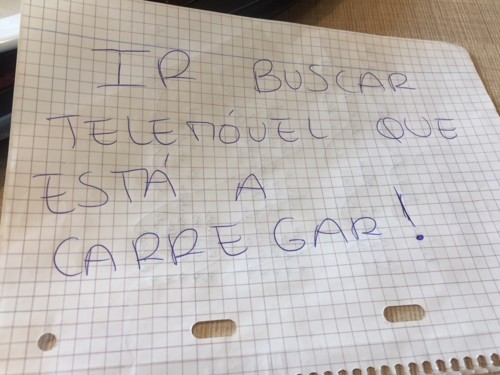 IR BUSCAR
TELEMÓVEL QUE
ESTÁ A
CARREGAR!